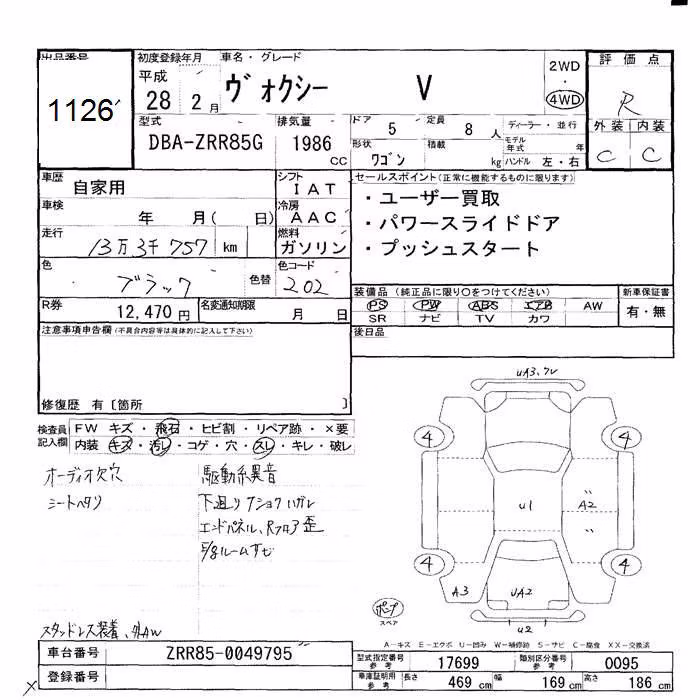 出品番号
1126
初度登録年月
平成
28 2 月
車名・グレード
ヴォクシー V
2WD
・
4WD
評価点
R
外装 内装
C C
型式
DBA-ZRR85G
排気量
1986
CC
ドア
5
定員
8 人
ディーラー・並行
形状
ワゴン
積載
kg
モデル年式 年
ハンドル 左・右
車歴
自家用
シフト
IAT
車検
年 月( 日)
冷房
AAC
走行
13万3千757 km
燃料
ガソリン
セールスポイント(正常に機能するものに限ります)
・ユーザー買取
・パワースライドドア
・プッシュスタート
色
ブラック
色替
色コード
202
R券
12,470 円
名変通知期限
月 日
装備品 (純正品に限り〇をつけてください)
PS PW ABS エアB AW
SR ナビ TV カワ
新車保証書
有・無
注意事項申告欄(不具合内容等は具体的に記入して下さい)
後日品
修復歴 有〔箇所 〕
検査員記入欄
FW キズ・飛石・ヒビ割・リペア跡・×要
内装 キズ・汚レ・コゲ・穴・スレ・キレ・破レ
オーディオ欠穴
シートヘタリ
駆動系異音
下廻り
エンドパネル、Rフロア歪
スタッドレス装着、外AW
4
4
4
4
U1
A2
A3
UA2
U2
スペア
A-キズ E-エクボ U-凹み W-補修跡 S-サビ C-腐食 XX-交換済
車台番号
ZRR85-0049795
登録番号
型式指定番号
参考
17699
類別区分番号
参考
0095
車庫証明用
参考
長さ 469 cm 幅 169 cm 高さ 186 cm